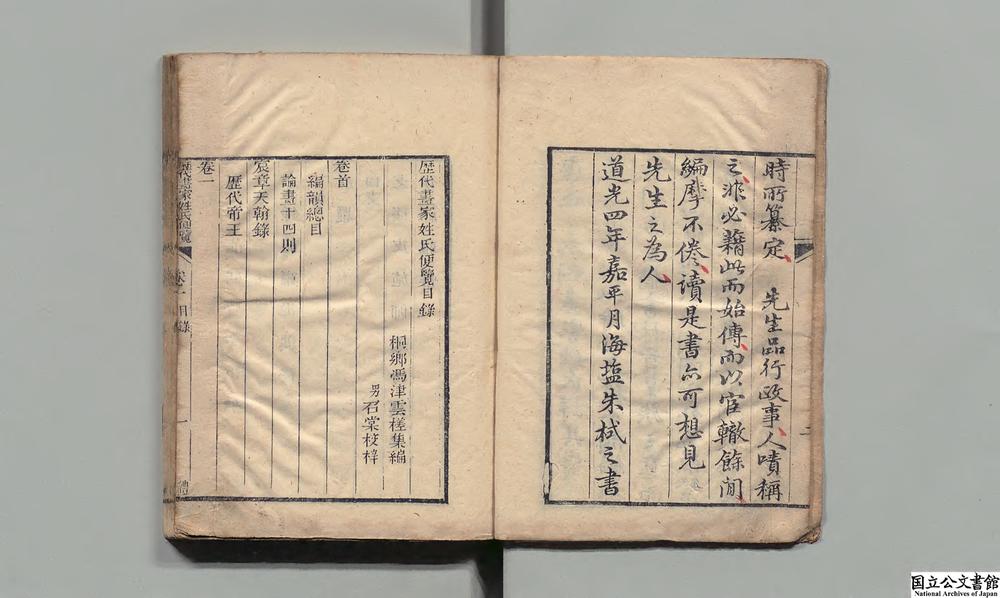 時所纂定　先生品行政事人嘖稱
之非必藉此而始傳而以官轍餘閒
編摩不倦讀是書亦可想見
先生之為人
道光四年嘉平月海塩朱栻之書
二
歷代畫家姓氏便覽目錄
桐鄉馮津雲槎集編
男石棠校梓
卷首
編韻總目
論畫十四則
宸章天翰錄
歷代帝王
卷一
歷代畫家姓氏便覽
目錄
一
国立公文書館
National Archives of Japan